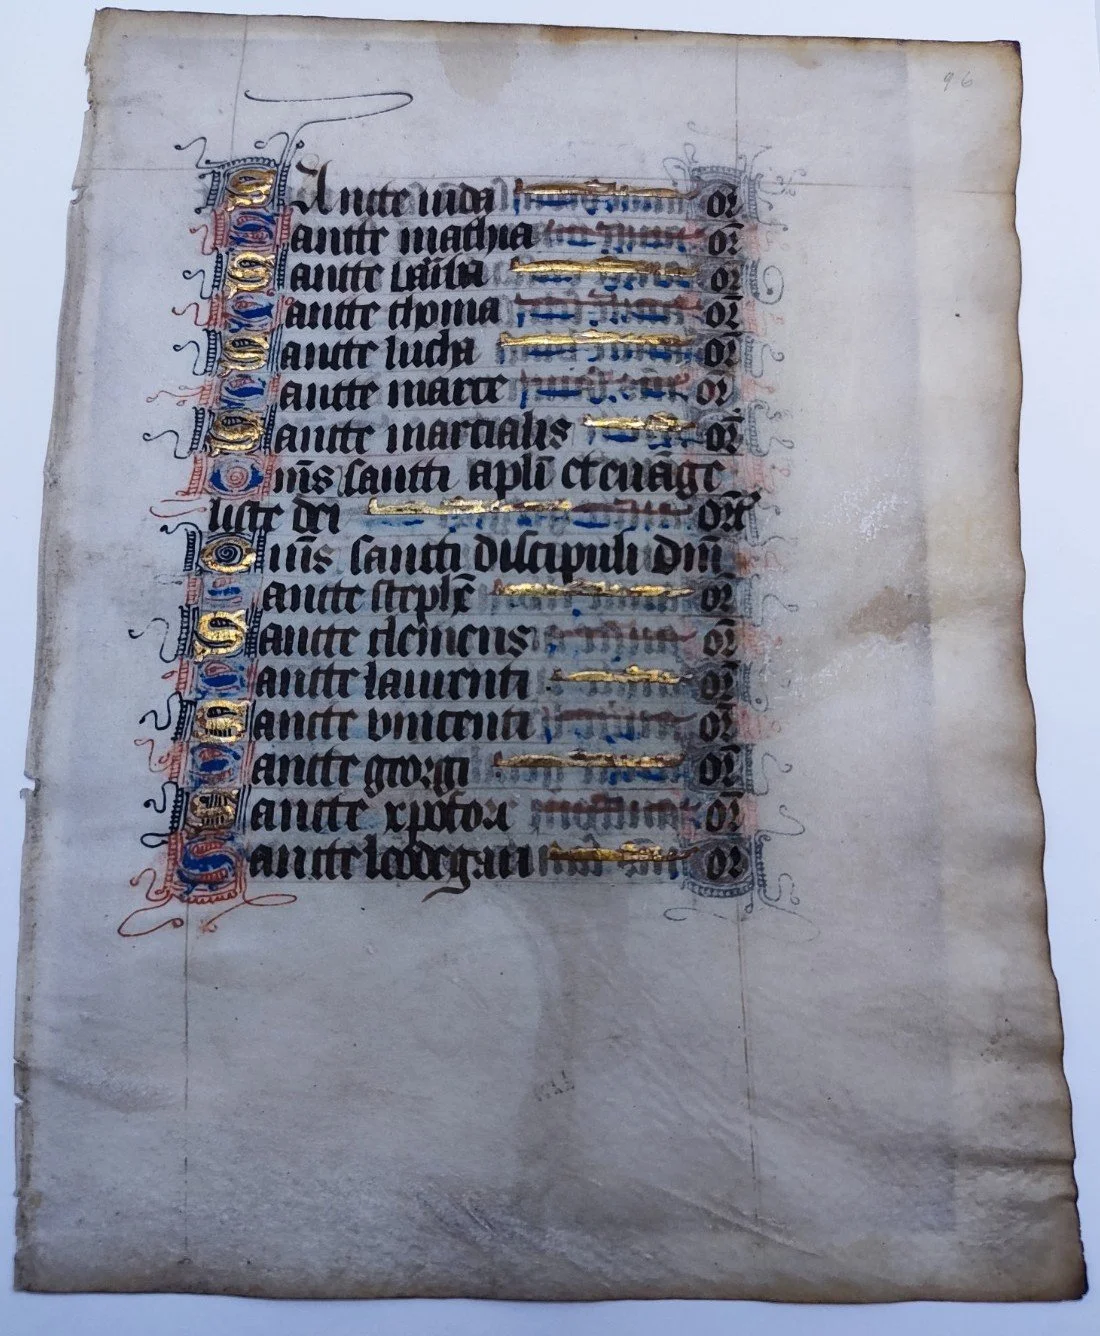 96
SAncte iuda or̄
Sancte mathia or̄
Sancte or̄
Sancte thoma or̄
Sancte lucha or̄
Sancte marce or̄
Sancte martialis or̄
Om̄s sancti apl̄i et euāge
liste dei or̄
Om̄s sancti discipuli dn̄i
Sancte steph̄e or̄
Sancte clemens or̄
Sancte laurenti or̄
Sancte vincenti or̄
Sancte georgi or̄
Sancte xpofore or̄
Sancte leodegari or̄